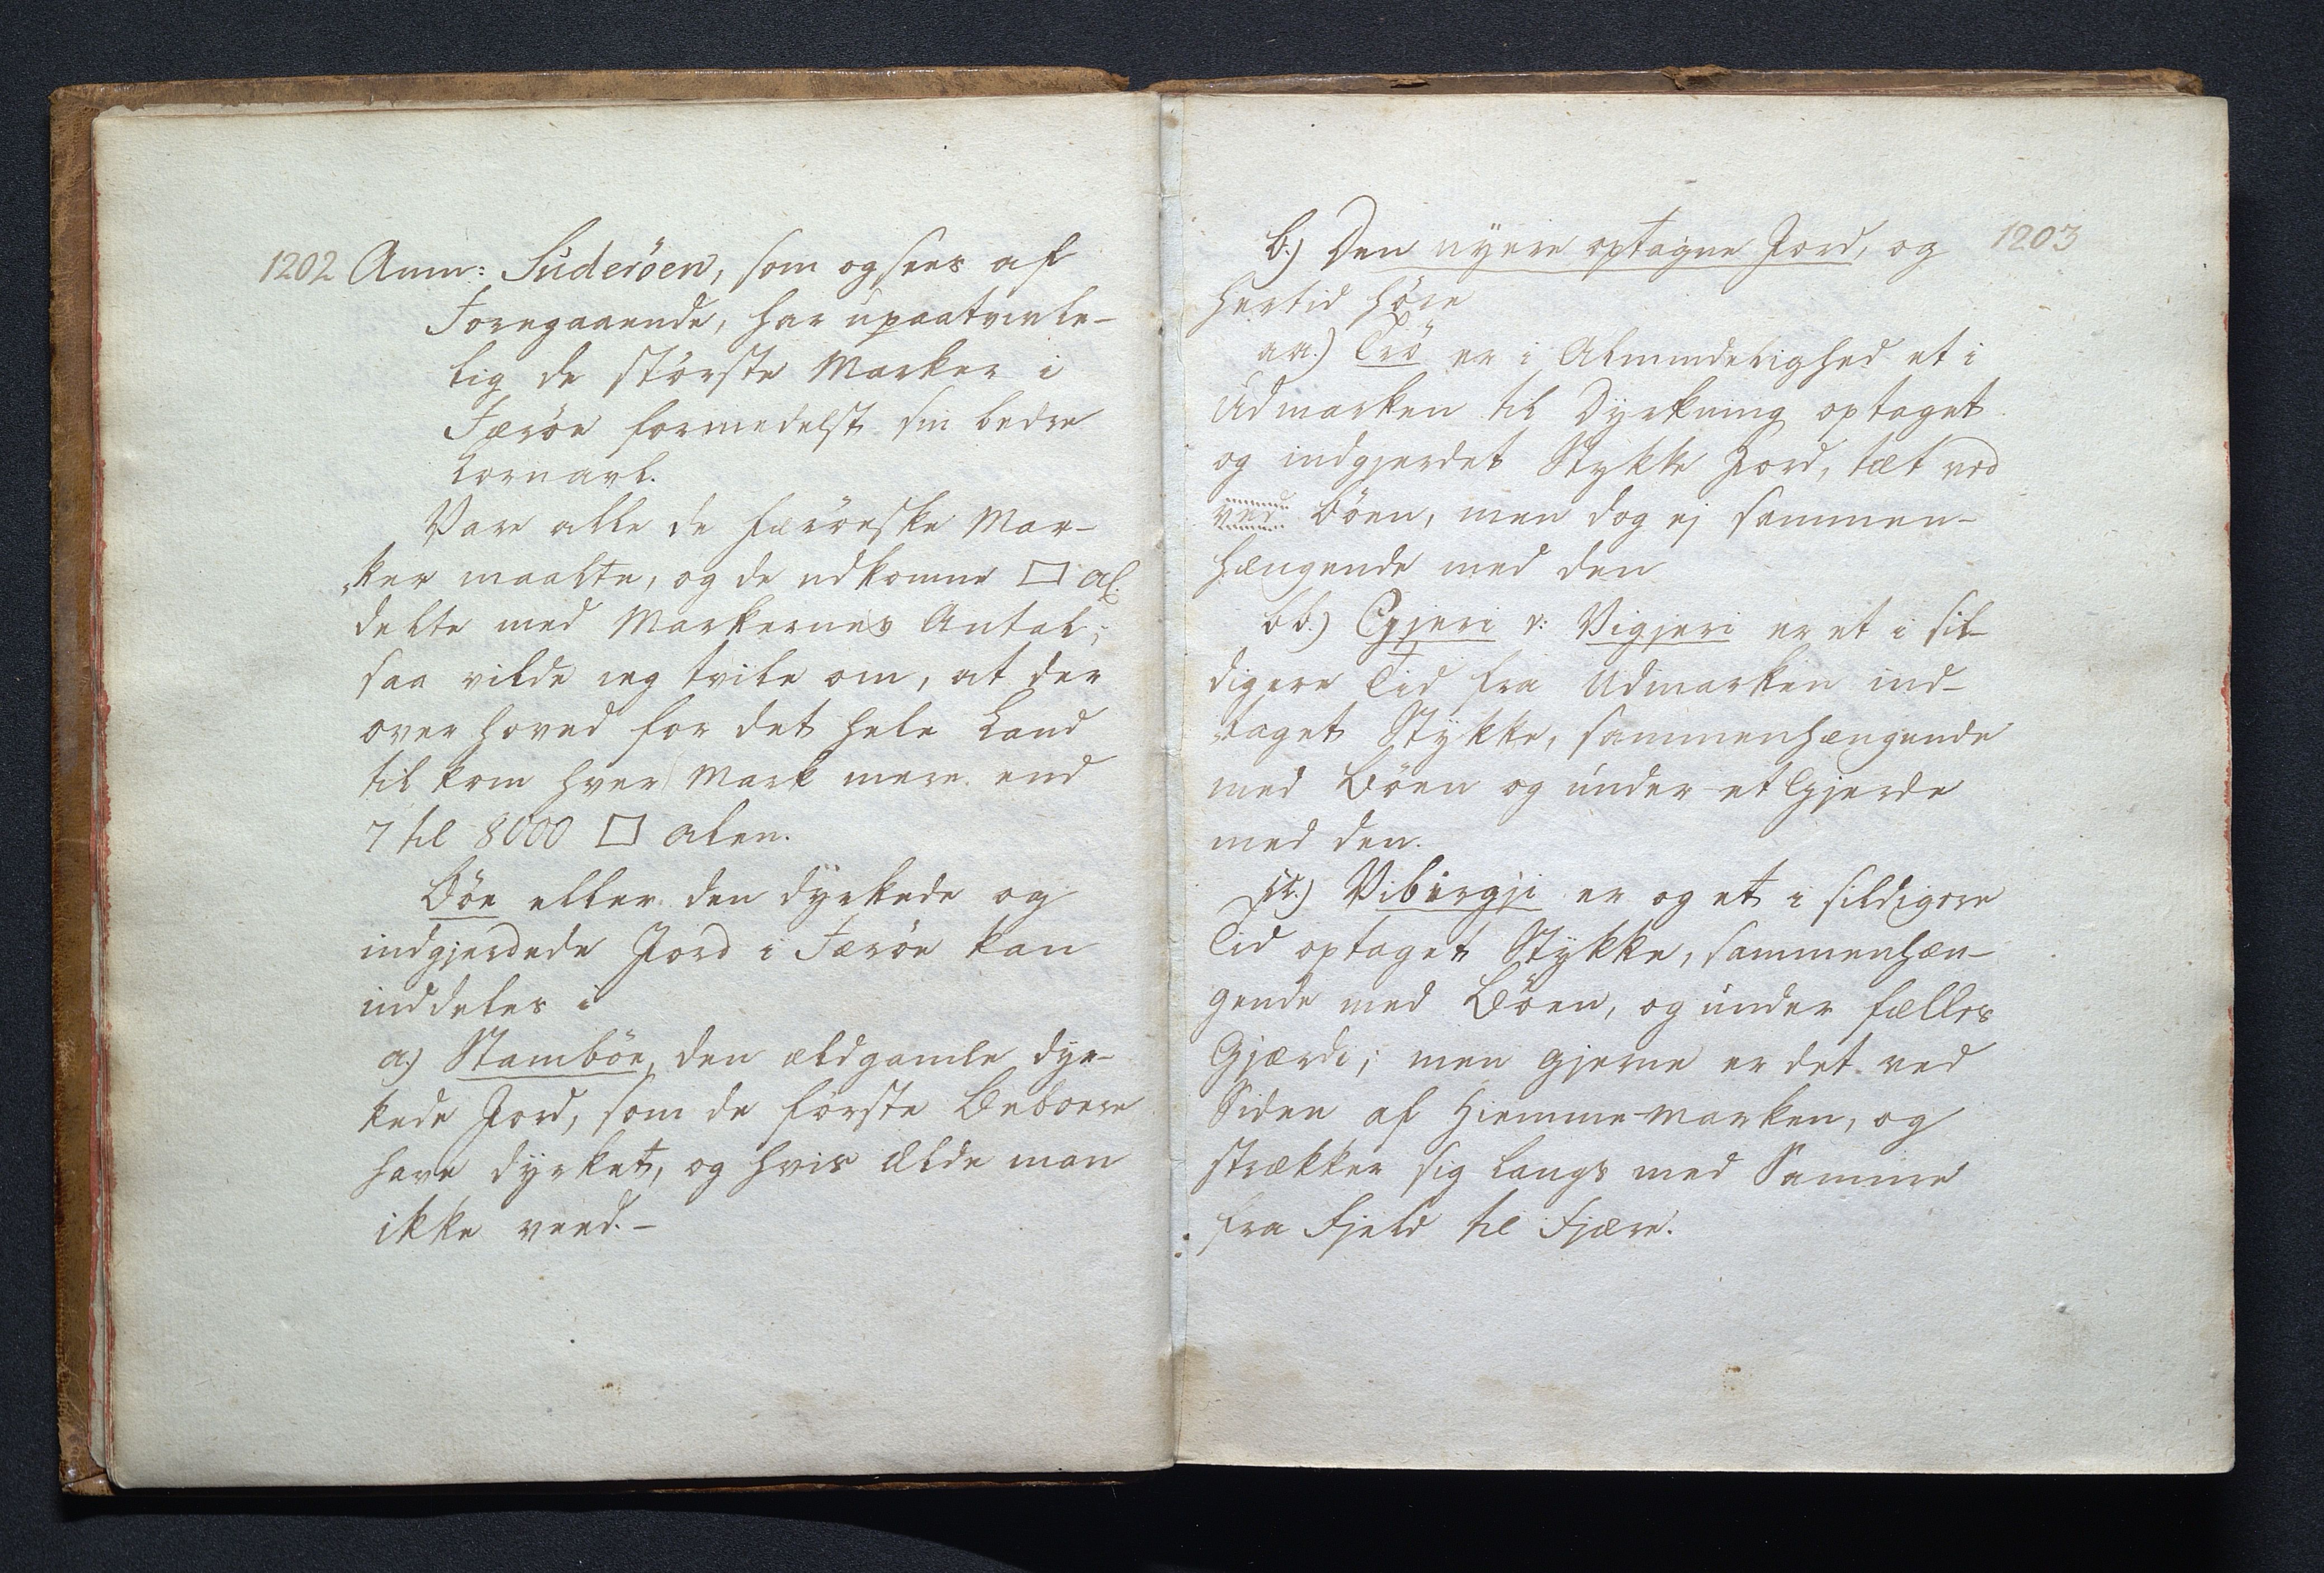 1202 Anm: Suderöen, som og sees af
Foregaaende, har upaatvivle-
lig de störste Marker i
Færöe formedelst sin bedre
Kornavl.
Vare alle de færöeske Mar-
ker maalte, og de udkomne □ Al.
delte med Markernes Antal;
saa vilde ieg tvile om, at der
over hoved for det hele Land
til kom hver Mark mere end
7 til 8000 □ Alen.
Böe eller den dyrkede og
indgjerdede Jord i Færöe kan
inddeles i
a.) Stamböe, den ældgamle dyr-
kede Jord, som de förste Beboere
have dyrket, og hvis Ælde man
ikke veed. -
b.) Den nyere optagne Jord, og 1203
hertid höre
aa.) Trö er i Almindelighed et i
Udmarken til Dyrkning optaget
og indgjerdet Stykke Jord, tæt ved
ved Böen, men dog ej sammen-
hængende med den
bb.) Gjeri v: Vigjeri er et i sil-
digere Tid fra Udmarken ind-
taget Stykke, sammenhængende
med Böen og under et Gjerde
med den.
cc.) Vibirgji er og et i sildigere
Tid optaget Stykke, sammenhæn-
gende med Böen, og under fælles
Gjærde; men gjerne er det ved
Siden af Hiemme-marken, og
strækker sig langs med Samme
fra Fjeld til Fjære.